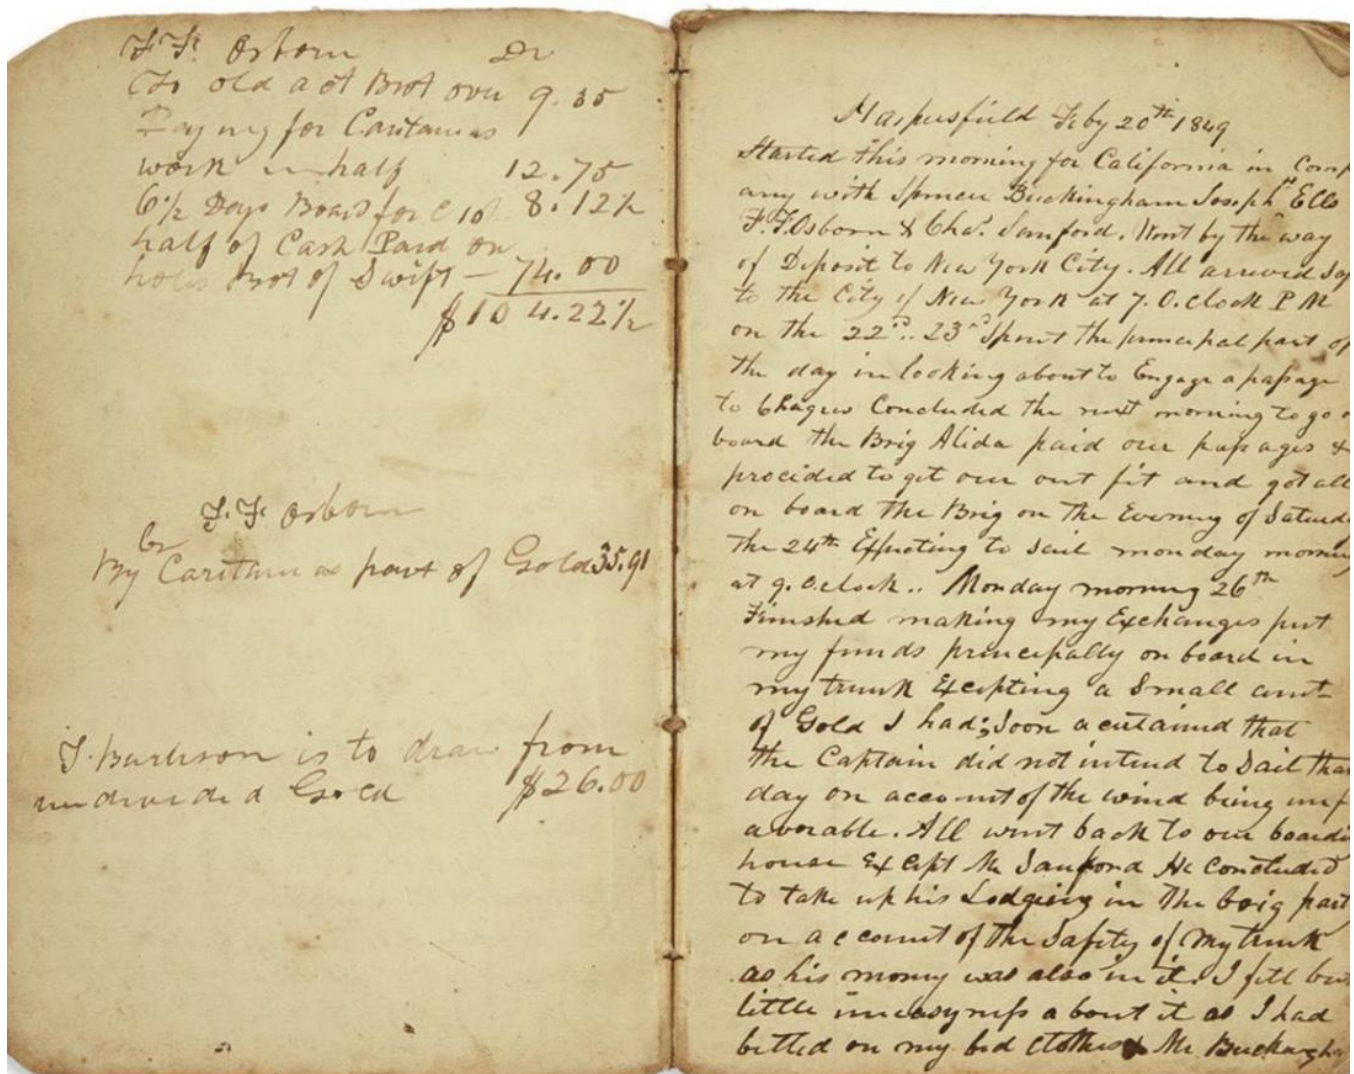 F. F. Osborn Dr
To old act Brot over 9.35
Paying for
work in half 12.75
6½ Days Board for 8.12½
half of Cash Paid on
Brot of Swift — 74.00
$104.22½
F. F. Osborn
Cr
By as part of Gold 35.91
J. Burleson is to draw from
undivided Gold $26.00
Harpersfield Feby 20th 1849
Started this morning for California in Comp
any with Spencer Buckingham Joseph Ells
F. F. Osborn & Chas. Sanford. Went by the way
of Deposit to New York City. All arrived Saf
to the City of New York at 7. O. clock P M
on the 22nd.. 23rd Spent the principal part of
the day in looking about to Engage a passage
to Chagres Concluded the next morning to go o
board the Brig Alida paid our passages &
procided to get our out fit and got all
on board the Brig on the Evening of Saturd
the 24th Effecting to Sail monday morning
at 9. O.clock.. Monday morning 26th
Finished making my Exchanges put
my funds principally on board in
my trunk Excepting a Small amt
of Gold I had; Soon acertained that
the Captain did not intend to Sail that
day on account of the wind being unf
avorable. All went back to our boardi
house Except Mr Sanford He Concluded
to take up his Lodging in the brig part
on account of the Safety of my trunk
as his money was also in it. I felt but
little uneasyness about it as I had
on my bed Clothes & Mr Buckingh